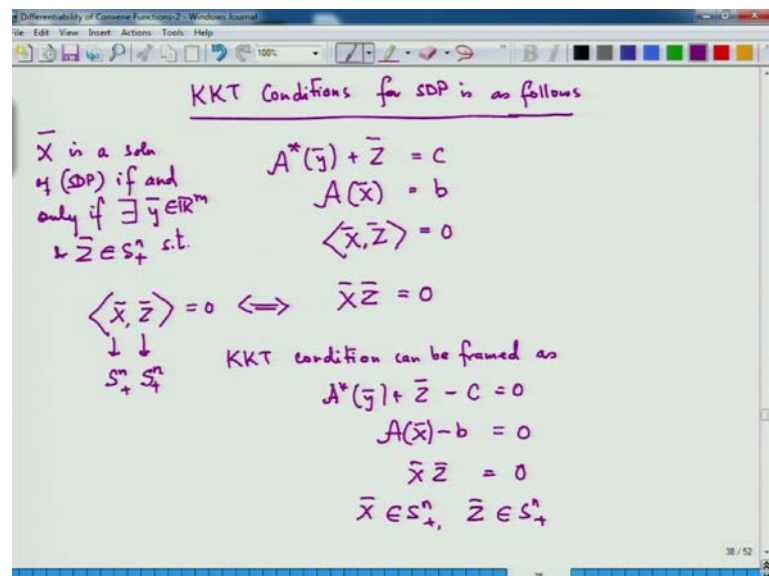 Differentiability of Convene Functions-2 - Windows Journal
File Edit View Insert Actions Tools Help
100%
KKT Conditions for SDP is as follows
X̄ is a soln
of (SDP) if and
only if ∃ ȳ ∈ ℝᵐ
& Z̄ ∈ Sⁿ₊ s.t.
A*(ȳ) + Z̄ = C
A(x̄) = b
⟨x̄, Z̄⟩ = 0
⟨x̄, z̄⟩ = 0 <=> x̄ z̄ = 0
↓ ↓
Sⁿ₊ Sⁿ₊
KKT condition can be framed as
A*(ȳ) + Z̄ - C = 0
A(x̄) - b = 0
x̄ z̄ = 0
x̄ ∈ Sⁿ₊, z̄ ∈ Sⁿ₊
38 / 52